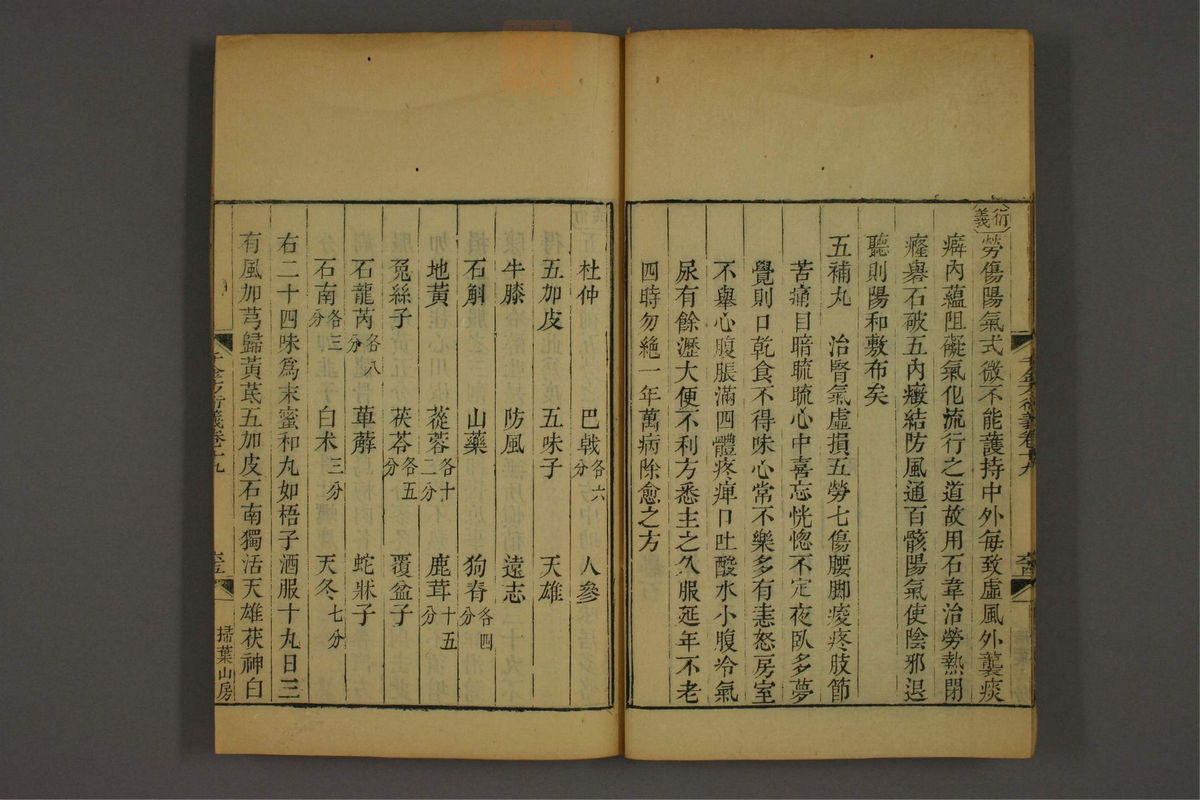 衍義
勞傷陽氣式微不能護持中外每致虛風外襲痰
癖內蘊阻礙氣化流行之道故用石韋治勞熱閉
癃礜石破五內癥結防風通百骸陽氣使陰邪退
聽則陽和敷布矣
五補丸 治腎氣虛損五勞七傷腰脚痠疼肢節
苦痛目暗䀮䀮心中喜忘恍惚不定夜臥多夢
覺則口乾食不得味心常不樂多有恚怒房室
不舉心腹脹滿四體疼痺口吐酸水小腹冷氣
尿有餘瀝大便不利方悉主之久服延年不老
四時勿絕一年萬病除愈之方
千金方衍義卷十九
杜仲 巴戟各六分 人參
五加皮 五味子 天雄
牛膝 防風 遠志
石斛 山藥 狗脊各四分
地黃 蓯蓉各十二分 鹿茸十五分
兔絲子 茯苓各五分 覆盆子
石龍芮各八分 萆薢 蛇牀子
石南各三分 白朮三分 天冬七分
右二十四味為末蜜和丸如梧子酒服十丸日三
有風加芎歸黃芪五加皮石南獨活天雄茯神白
千金方衍義卷十九
掃葉山房